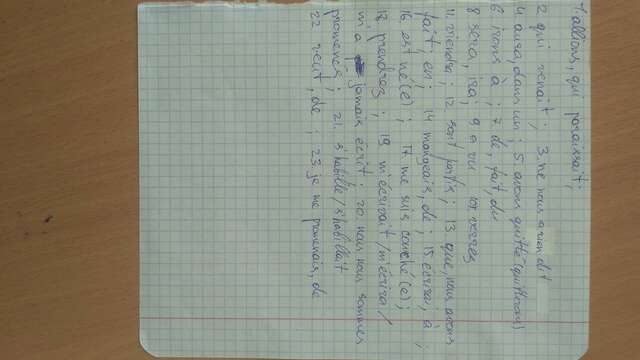 1 allions, qui paraissait;
2 qui venait; 3. ne nous a rien dit
4 aura, dans un; 5 avons quitté (quitterons)
6 irons à; 7 de, fait, du
8 sera, ira; 9 a vu 10
11 viendra; 12 sont partis; 13 que, nous avons
fait, en; 14 mangeais, de; 15 écrirai, à;
16 est né(e); 17 me suis couché(e);
18 prendrez; 19 m'écrivait/m'écrira/
m'a jamais écrit; 20. nous nous sommes
promenés; 21. s'habille/s'habillait
22 veut, de; 23 je me promenais, de